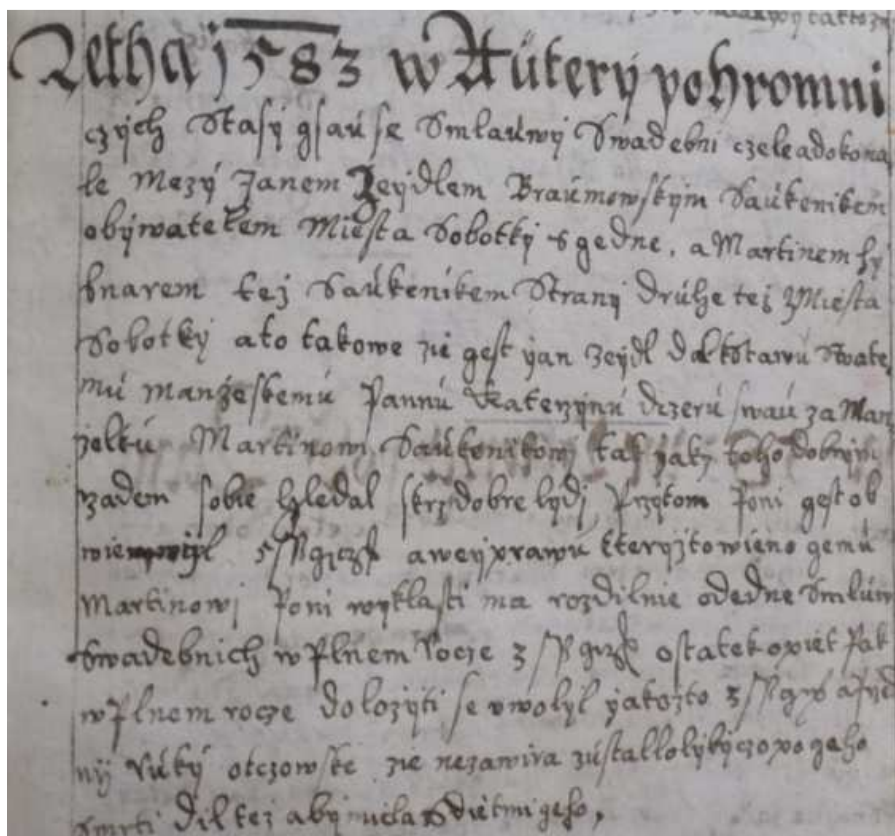 Letha j583 w Autery po hromni
czých Stasý gsau se Smlauwý Swadebni czele a dokona
le Mezý Janem Zeýdlem Braumowským Saukenikem
obýwatelem Miesta Sobotký s gedne, a Martinem
tez Saukenikem Straný druhe tez Miesta
Sobotký a to takowe zie gest yan Zeýdl dal k Stawu Swate
mu Manżeskemu Pannu Katerzynu dczeru swau za Man
zelku Martinowi Saukenikowi tak yakz toho dobrým
rzadem sobie hledal skrz dobre lydj Przytom Poni gest ob
5 a weyprawu kteryzto wieno gemu
Martinowj Poni wyklasti ma rozdilnie ode dne Smluw
Swadebnich w Plnem Rocze 3 ostatek opiet Pak
w Plnem rocze dolozýti se uwolyl yakozto 3
Ruký otczowske zie nezawira zustalloly by czo po geho
Smrti dil tez abý miela s dietmi geho,